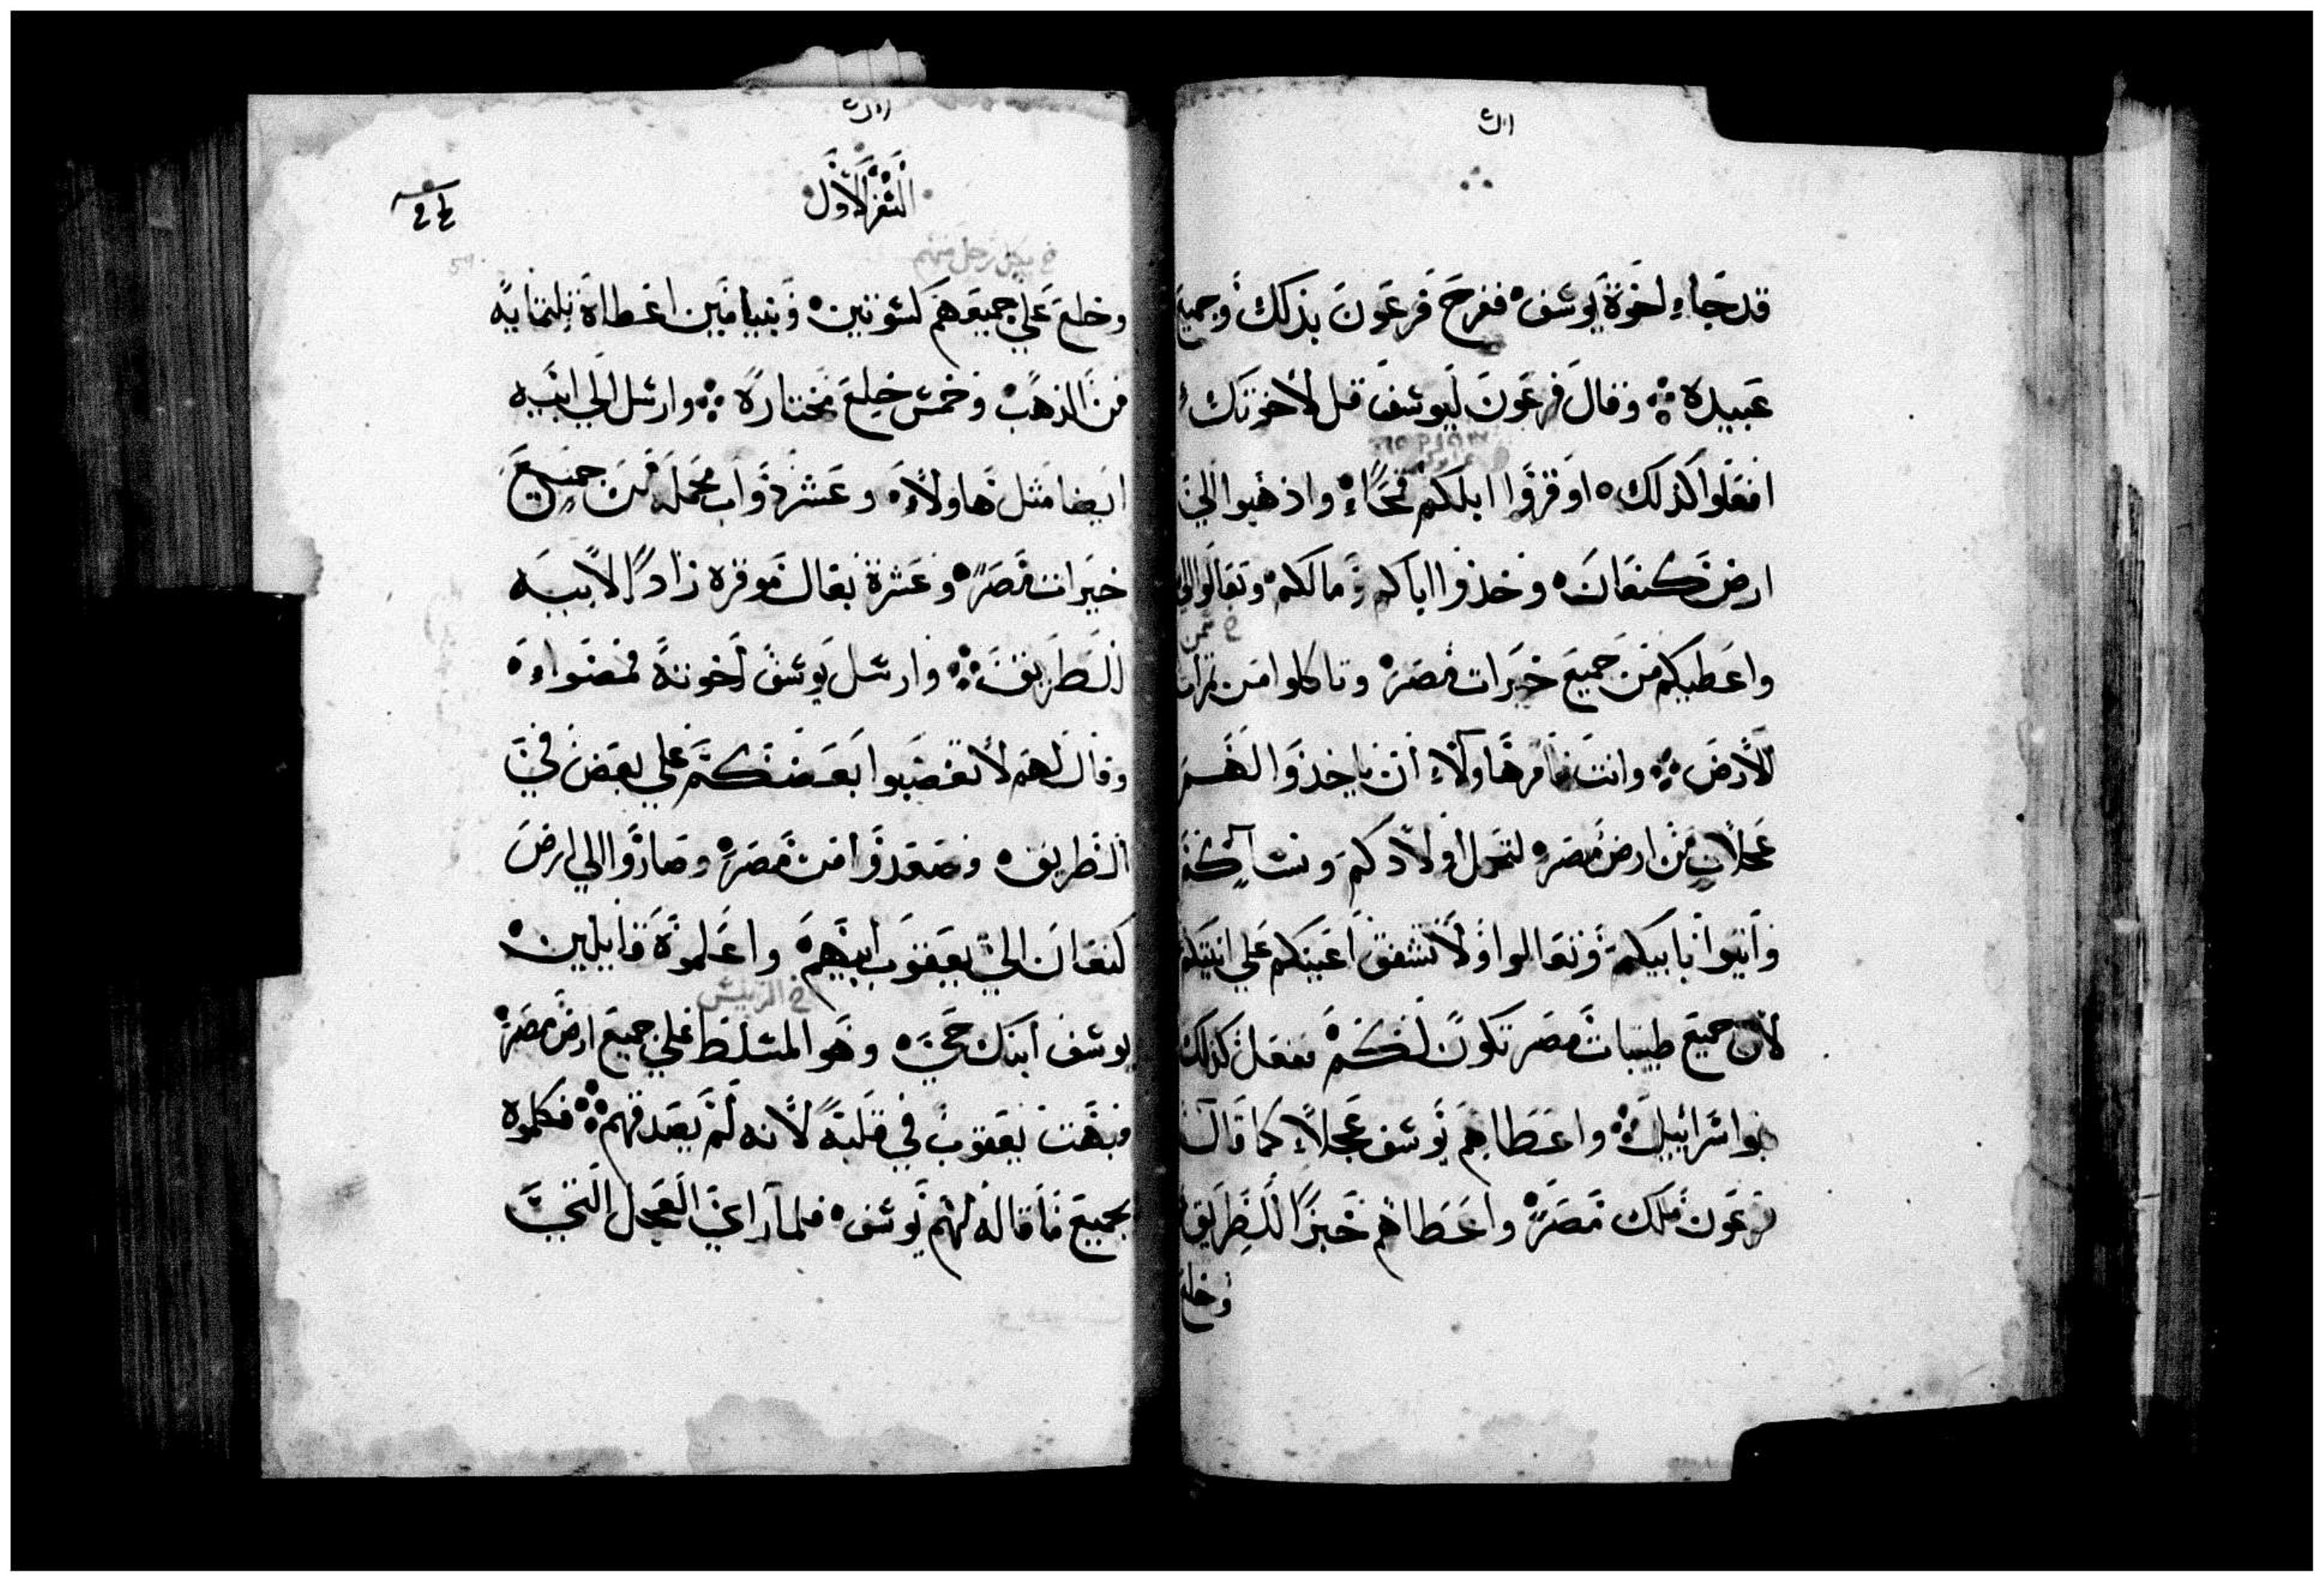 قد جاء اخوة يوسف ففرح فرعون بذلك وجميع
عبيده وقال فرعون ليوسف قل لاخوتك
افعلوا كذلك اوقروا ابلكم قمحاً واذهبوا الي
ارض كنعان وخذوا اباكم ومالكم وتعالوا الي
واعطيكم من جميع خيرات مصر وتاكلوا من
الارض وانت فامر هاولاء ان ياخذوا لهم
عجلات من ارض مصر لتحمل اولادكم ونساكم
واتوا بابيكم وتعالوا ولا تشفق اعينكم علي
لان جميع طيبات مصر تكون لكم ففعل كذلك
بنوا اسرائيل واعطاهم يوسف عجلاً كما قال
فرعون ملك مصر واعطاهم خبزاً للطريق
وخلع
السفر الاول
خ لكل رجل منهم
وخلع علي جميعهم كسوتين وبنيامين اعطاه ثلثماية
من الذهب وخمس خلع مختارة وارسل الي ابيه
ايضا مثل هاولاء وعشر دواب محملة من جميع
خيرات مصر وعشرة بغال موقره زاداً لابيه
للطريق وارسل يوسف اخوته فمضواء
وقال لهم لا تغضبوا بعضكم علي بعض في
الطريق وصعدوا من مصر وصاروا الي ارض
كنعان الي يعقوب ابيهم واعلموه قايلين
خ الرييس
يوسف ابنك حي وهو المسلط علي جميع ارض مصر
فبهت يعقوب في قلبه لانه لم يصدقهم فكلموه
بجميع ما قاله لهم يوسف فلما راي العجل التي